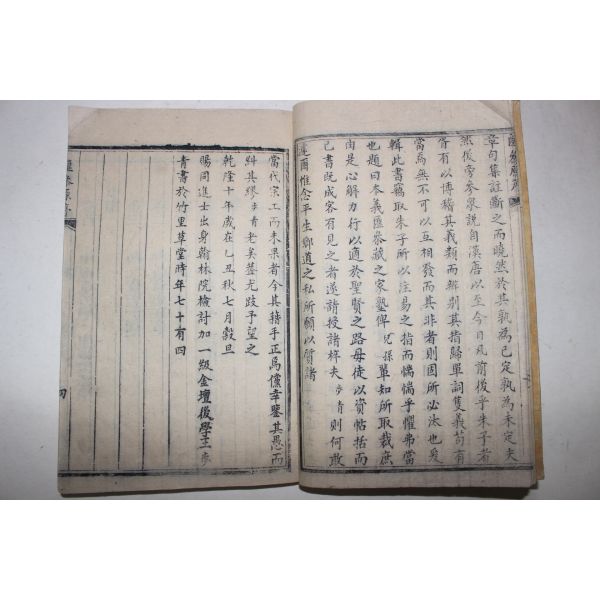 章句集註斷之而曉然於其孰為已定孰為未定夫
然後旁參衆說自漢唐以至今日凡前後乎朱子者
胥有以博稽其義類而辨別其指歸單詞隻義苟有
當焉無不可以互相發而其非者則固所必汰也爰
輯此書竊取朱子所以注易之指而惴惴乎懼弗當
也題曰本義匯參藏之家塾俾兒孫單知所取裁庶
由是心解力行以適於聖賢之路毋徒以資帖括而
已書既成客有見之者遂請授諸梓夫步青則何敢
邇爾惟念平生鄉道之私所願以質諸
當代宗工而未果者今其藉手正焉儻幸鑒其愚而
糾其繆步青老矣蓋尤跂予望之
乾隆十年歲在乙丑秋七月穀旦
賜同進士出身翰林院檢討加一級金壇後學王步
青書於竹里草堂時年七十有四
四